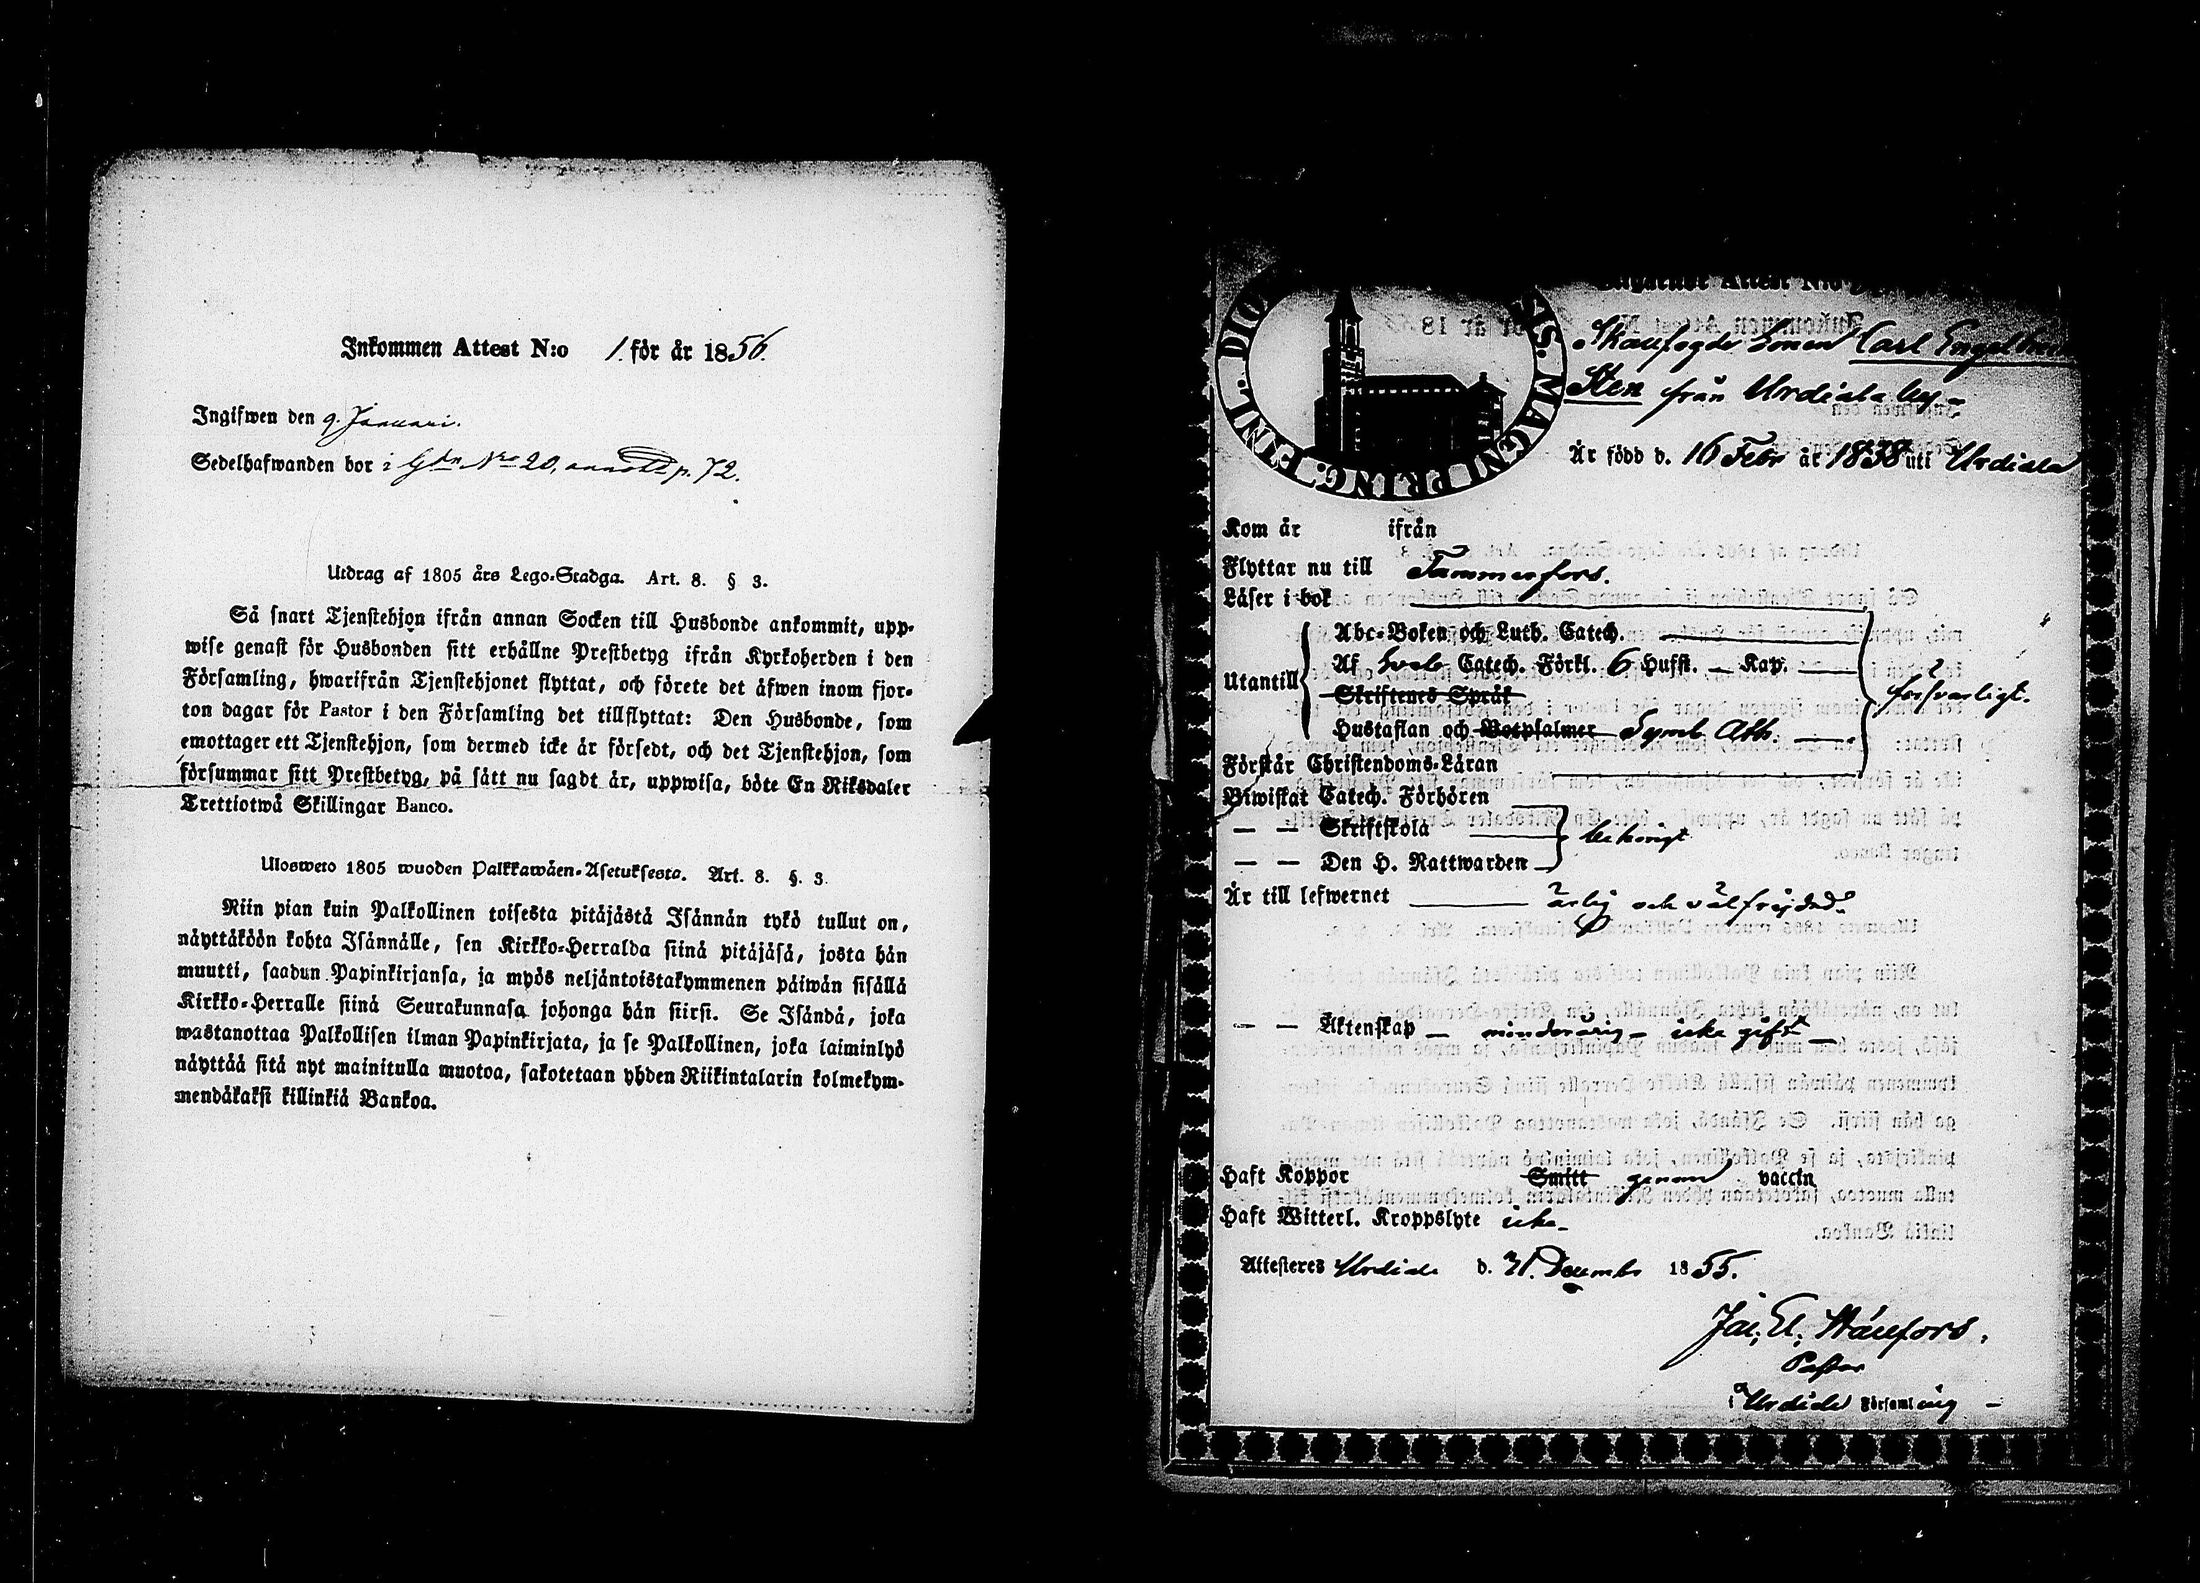 Inkommen Attest N:o 1. för år 1856.
Ingifwen den 9. Januari.
Sedelhafwanden bor i Gdn Nro 20, p. 72.
Utdrag af 1805 års Lego-Stadga. Art. 8. § 3.
Så snart Tjenstehjon ifrån annan Socken till Husbonde ankommit, upp-
wise genast för Husbonden sitt erhållne Prestbetyg ifrån Kyrkoherden i den
Församling, hwarifrån Tjenstehjonet flyttat, och förete det äfwen inom fjor-
ton dagar för Pastor i den Församling det tillflyttat: Den Husbonde, som
emottager ett Tjenstehjon, som dermed icke är försedt, och det Tjenstehjon, som
försummar sitt Prestbetyg, på sätt nu sagdt är, uppwisa, böte En Riksdaler
Trettiotwå Skillingar Banco.
Ulosweto 1805 wuoden Palkkawäen-Asetuksesta. Art. 8. §. 3.
Niin pian kuin Palkollinen toisesta pitäjästä Isännän tykö tullut on,
näyttäköön kohta Isännälle, sen Kirkko-Herralda siinä pitäjäsä, josta hän
muutti, saadun Papinkirjansa, ja myös neljäntoistakymmenen päiwän sisällä
Kirkko-Herralle siinä Seurakunnasa johonga hän siirsi. Se Isändä, joka
wastanottaa Palkollisen ilman Papinkirjata, ja se Palkollinen, joka laiminlyö
näyttää sitä nyt mainitulla muotoa, sakotetaan yhden Riikintalarin kolmekym-
mendäkaksi killinkiä Bankoa.
Attest N:o
IS. MAGNI PRING. FINL. DIO
Skallfogde Sonen Carl Engelbrecht
Sten från Urdiala by
Är född d. 16 Febr år 1838 uti Urdiala
Kom år ifrån
Flyttar nu till Tammerfors.
Läser i bok
Abc-Boken och Luth. Catech.
Utantill Af Catech. Förkl. 6 Hufst. Kap. försvarligt.
Skriftenes Språk
Hustaflan och Botpsalmer Symb Ath.
Förstår Christendoms-Läran
Biwistat Catech. Förhören
— — Skriftskola behörigt
— — Den H. Nattwarden
Är till lefwernet ärlig och välfrejdad
— — Äktenskap — minderårig — icke gift —
Haft Koppor Smitt genom vaccin
Haft Witterl. Kroppslyte icke
Attesteres Urdiala d. 31. Decembr 1855.
Pastor
i Urdiala Församling